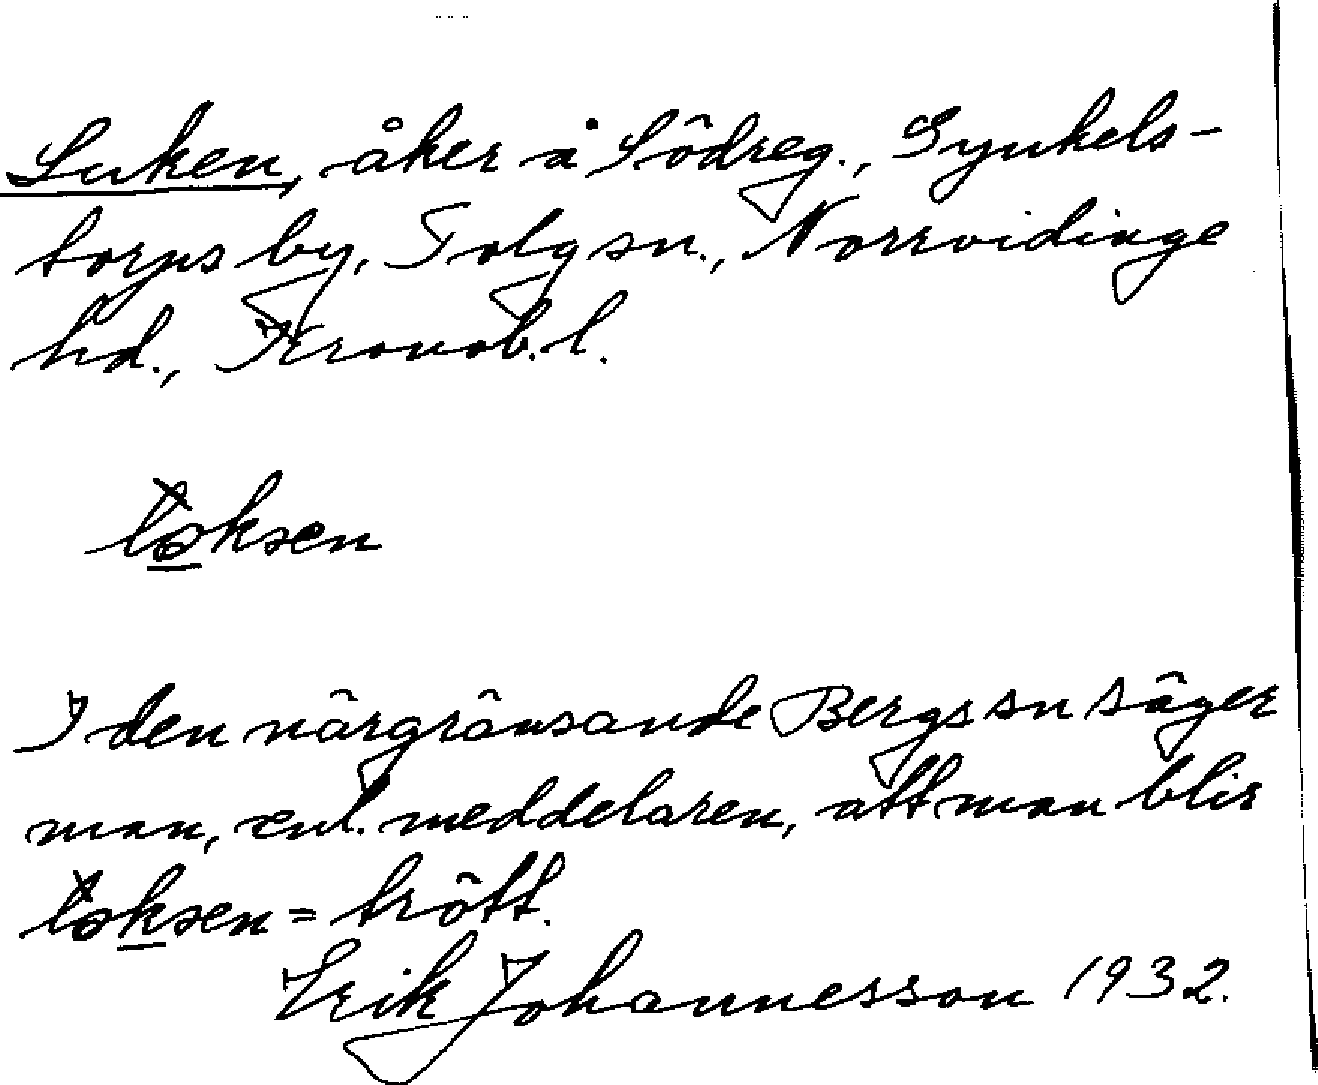 Luken, åker å Södreg., Synkels-
torps by, Tolg sn., Norrvidinge
hd., Kronob. l.
I den närgränsande Bergs sn säger
man, enl. meddelaren, att man blir
= trött.
Erik Johannesson 1932.